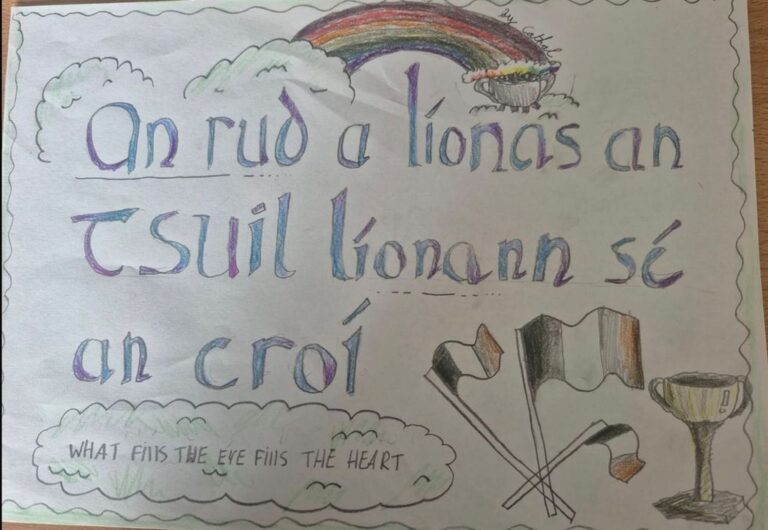 By Cathal
An rud a líonas an
TSUIL líonann sé
an croí
WHAT Fills THE EYE Fills THE HEART